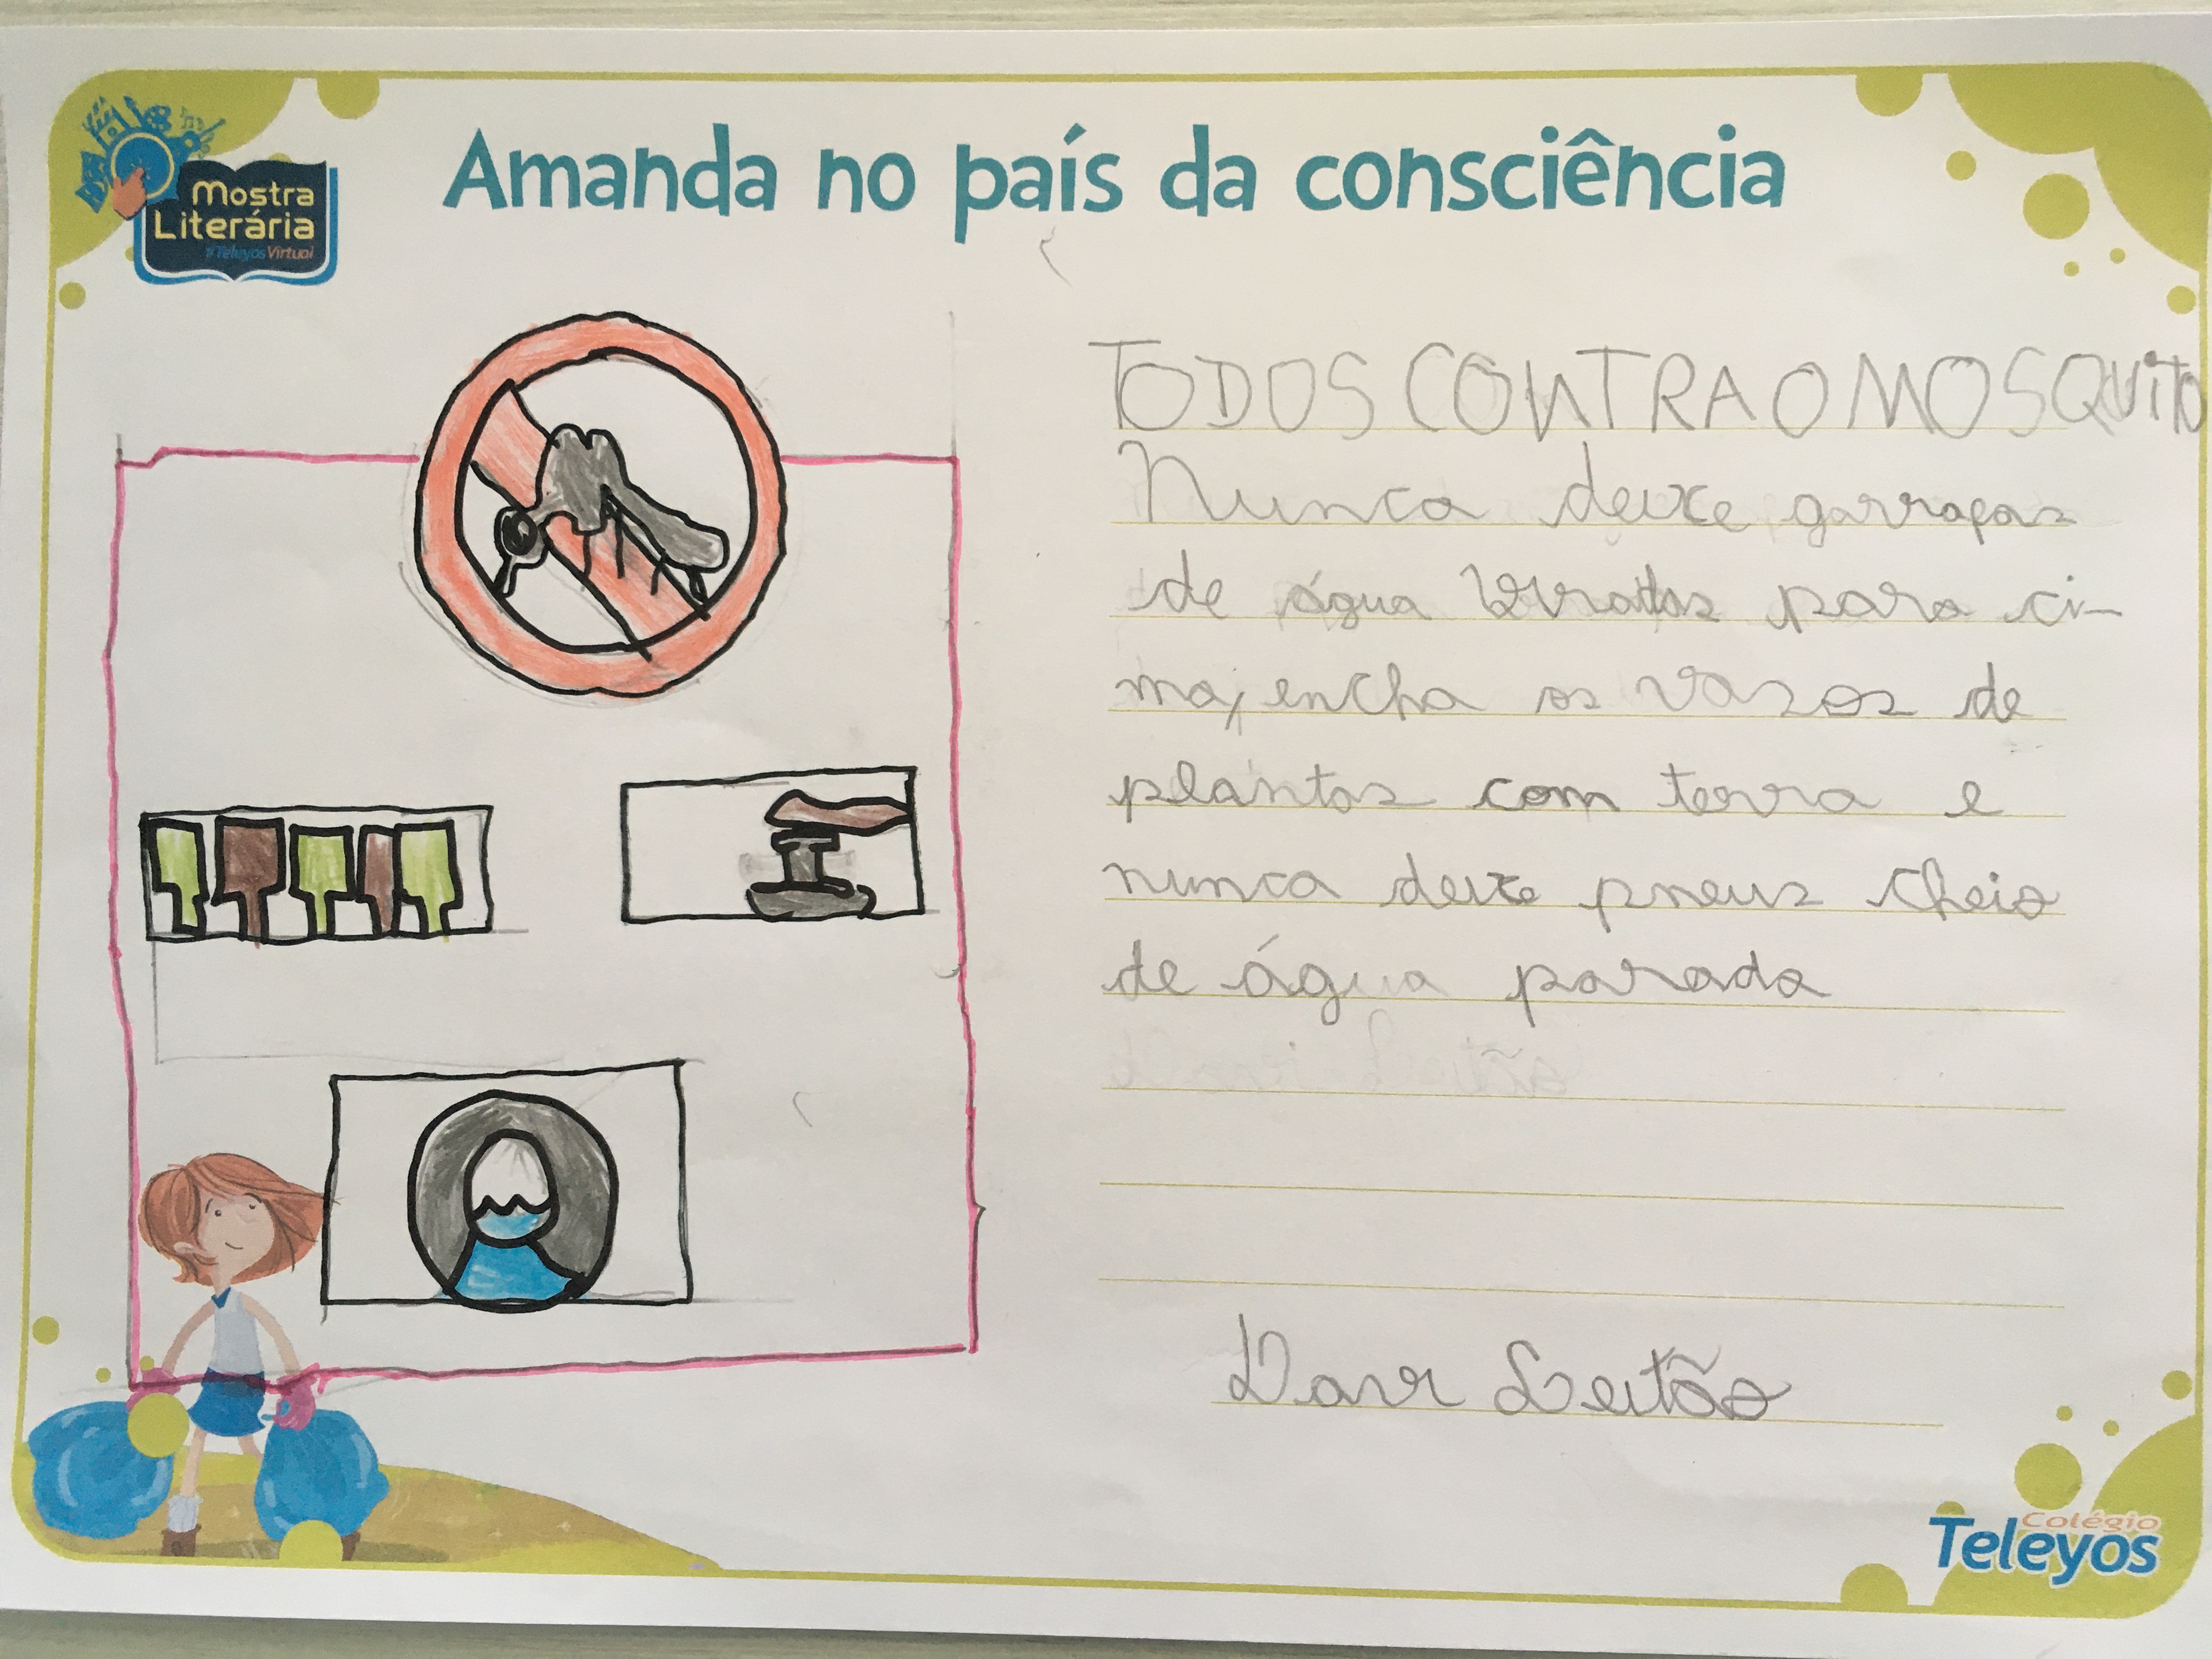 Amanda no país da consciência
Mostra
Literária
#TeleyosVirtual
TODOS CONTRA O MOSQUITO
Nunca deixe garrafas
de água viradas para ci-
ma, encha os vasos de
plantas com terra e
nunca deixe pneus cheio
de água parada
Davi Leitão
Colégio
Teleyos